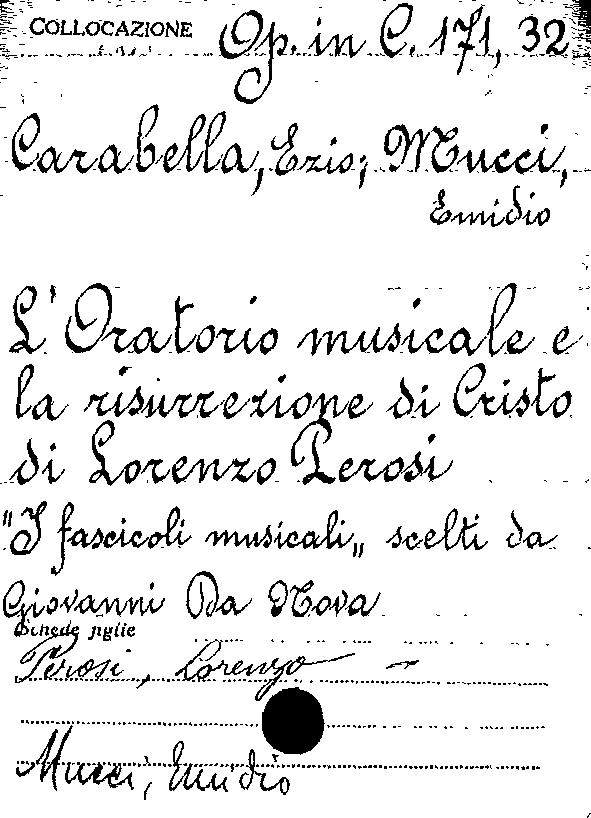 COLLOCAZIONE Op. in C. 171, 32
Carabella, Ezio; Mucci,
Emidio
L'Oratorio musicale e
la risurrezione di Cristo
di Lorenzo Perosi
"I fascicoli musicali„ scelti da
Giovanni Da Nova
Schede figlie
Perosi, Lorenzo —
Mucci, Emidio